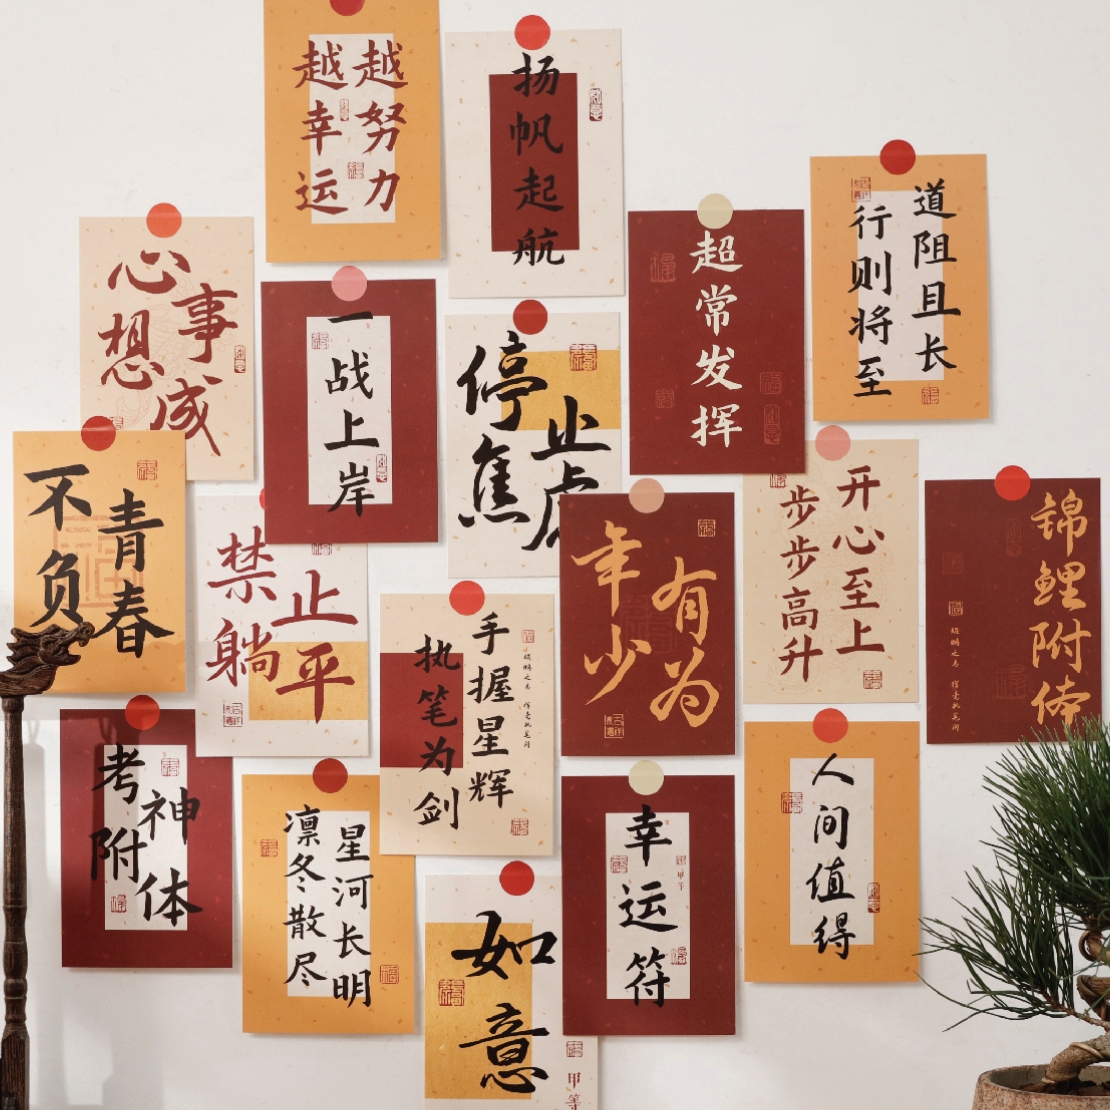 越努力
越幸运
扬帆起航
道阻且长
行则将至
超常发挥
心想
事成
一战上岸
停止
焦虑
开心至上
步步高升
锦鲤附体
不负
青春
禁止
躺平
年少
有为
手握星辉
执笔为剑
考神
附体
星河长明
凛冬散尽
幸运符
人间值得
如意
甲等